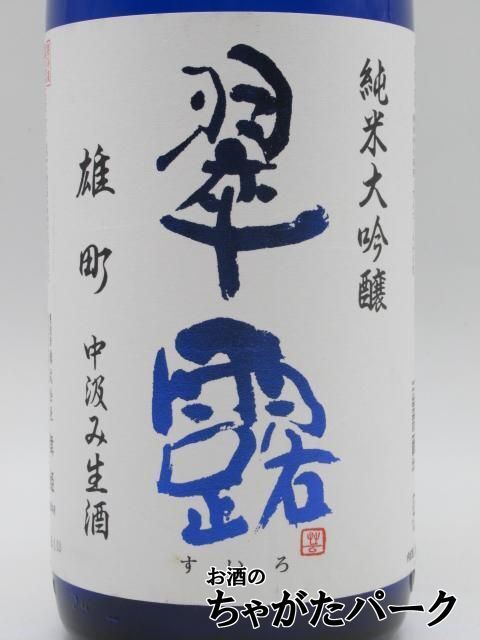 純米大吟醸
翠露
すいろ
雄町
中汲み生酒
お酒の
ちゃがたパーク